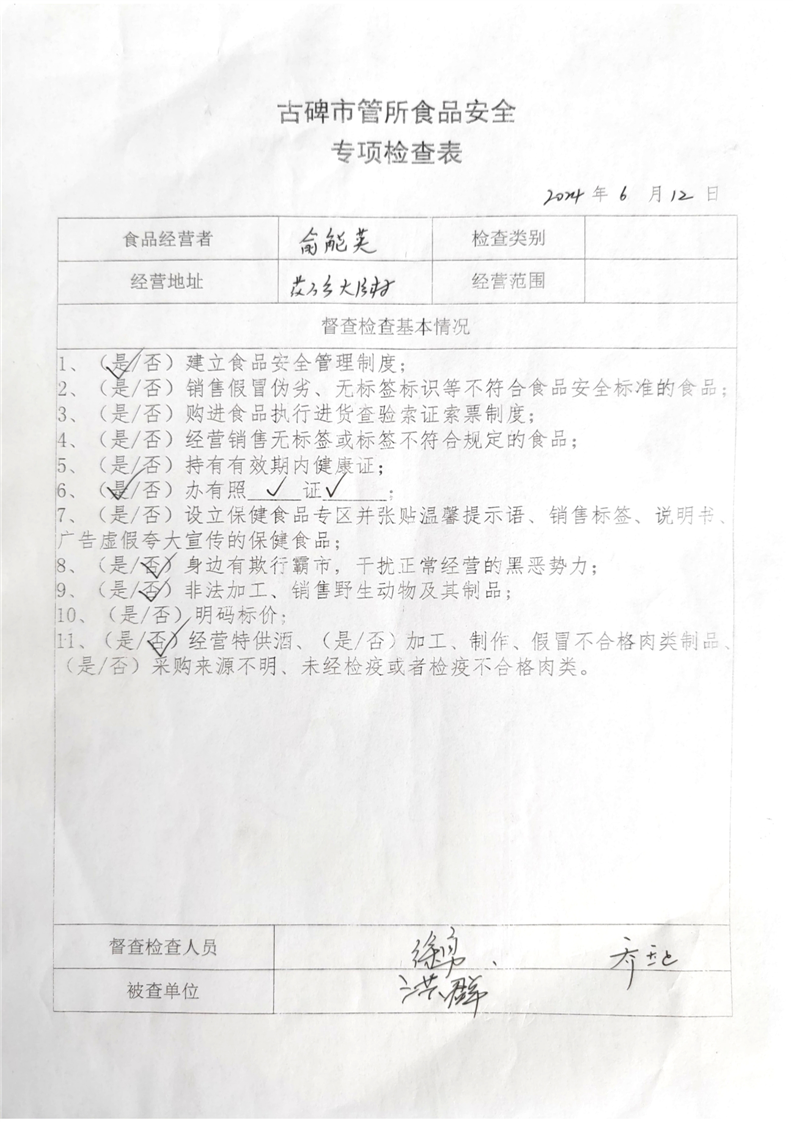 古碑市管所食品安全
专项检查表
2024 年 6 月 12 日
食品经营者 俞能英 检查类别
经营地址 大 村 经营范围
督查检查基本情况
1、（是/否）建立食品安全管理制度；
2、（是/否）销售假冒伪劣、无标签标识等不符合食品安全标准的食品；
3、（是/否）购进食品执行进货查验索证索票制度；
4、（是/否）经营销售无标签或标签不符合规定的食品；
5、（是/否）持有有效期内健康证；
6、（是/否）办有照 ✓ 证 ✓ ；
7、（是/否）设立保健食品专区并张贴温馨提示语、销售标签、说明书、
广告虚假夸大宣传的保健食品；
8、（是/否）身边有欺行霸市，干扰正常经营的黑恶势力；
9、（是/否）非法加工、销售野生动物及其制品；
10、（是/否）明码标价；
11、（是/否）经营特供酒、（是/否）加工、制作、假冒不合格肉类制品、
（是/否）采购来源不明、未经检疫或者检疫不合格肉类。
督查检查人员 徐勇、
被查单位 洪群